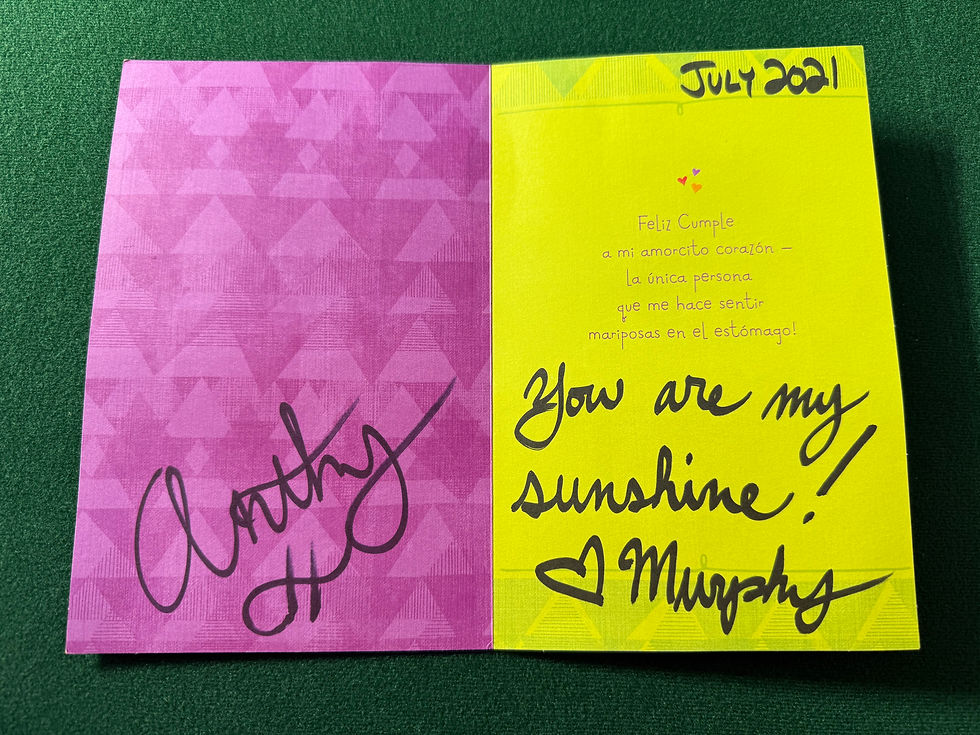 JULY 2021
Feliz Cumple
a mi amorcito corazón –
la única persona
que me hace sentir
mariposas en el estómago!
You are my
sunshine!
♡ Murphy